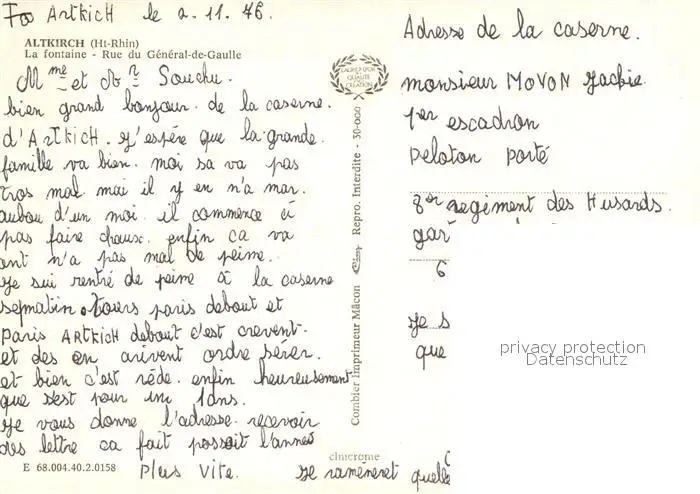 Fao Artkich le 2.11.76.
ALTKIRCH (Ht-Rhin)
La fontaine - Rue du Général-de-Gaulle
Mme et Mr Souchu.
bien grand bonjour. de la caserne.
d'Artkich. j'espére que la grande.
famille va bien. moi sa va pas
tros mal mai il y en n'a mar.
aubou d'un moi. il commence à
pas faire chaux. enfin ca va
ont n'a pas mal de peime.
Je sui rentré de peime à la caserne
sematin. tours paris debout et
Paris ARTKICH debout c'est crevent.
et des en arivent ordre sérer.
et bien c'est réde. enfin heureusement
que s'est pour un 1ans.
Je vous donne l'adresse. recevoir
des lettre ca fait possoit l'année
Plus vite.
E 68.004.40.2.0158
LAURÉAT D'OR DE LA QUALITÉ DE CRÉATION
Combier Imprimeur Mâcon Cim Repro. Interdite - 30-000
cimcrome
Adresse de la caserne.
monsieur MOVON Jackie
1er escadron
Peloton Porté
8er regiment des Husards.
gar
6
Je s
que
Je rameneret quelle
privacy protection
Datenschutz